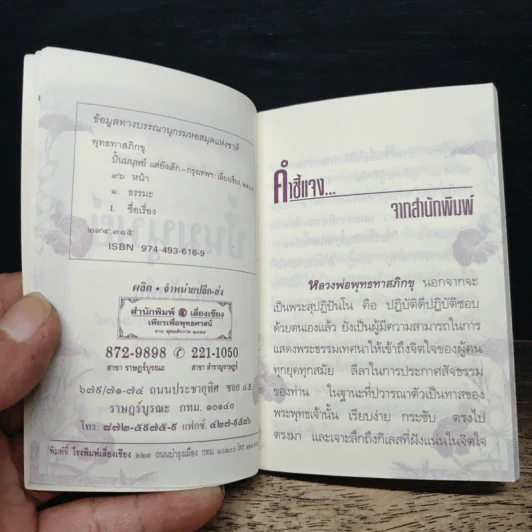 ข้อมูลทางบรรณานุกรมหอสมุดแห่งชาติ
พุทธทาสภิกขุ
ปั้นมนุษย์ แต่ยังเด็ก.-กรุงเทพฯ : เลี่ยงเชียง,
๙๖ หน้า
๑. ธรรมะ
I. ชื่อเรื่อง
๒๙๔.๓๑๕
ISBN 974-493-616-9
ผลิต • จำหน่ายปลีก-ส่ง
สำนักพิมพ์ เลี่ยงเชียง
เพียรเพื่อพุทธศาสน์
872-9898 221-1050
สาขา ราษฎร์บูรณะ สาขา สำราญราษฎร์
๖๗๙/๗๑-๗๔ ถนนประชาอุทิศ ซอย ๔๕
ราษฎร์บูรณะ กทม. ๑๐๑๔๐
โทร. ๘๗๒-๕๙๗๕-๙ แฟกซ์. ๔๒๗-๙๕๘๖
พิมพ์ที่ โรงพิมพ์เลี่ยงเชียง ๒๒๓ ถนนบำรุงเมือง กทม. ๑๐๒๐๐ โทร.
คำชี้แจง...
จากสำนักพิมพ์
หลวงพ่อพุทธทาสภิกขุ นอกจากจะ
เป็นพระสุปฏิปันโน คือ ปฏิบัติดีปฏิบัติชอบ
ด้วยตนเองแล้ว ยังเป็นผู้มีความสามารถในการ
แสดงพระธรรมเทศนาให้เข้าถึงจิตใจของผู้คน
ทุกยุคทุกสมัย ลีลาในการประกาศสัจธรรม
ของท่าน ในฐานะที่ปวารณาตัวเป็นทาสของ
พระพุทธเจ้านั้น เรียบง่าย กระชับ ตรงไป
ตรงมา และเจาะลึกถึงกิเลสที่ฝังแน่นในจิตใจ